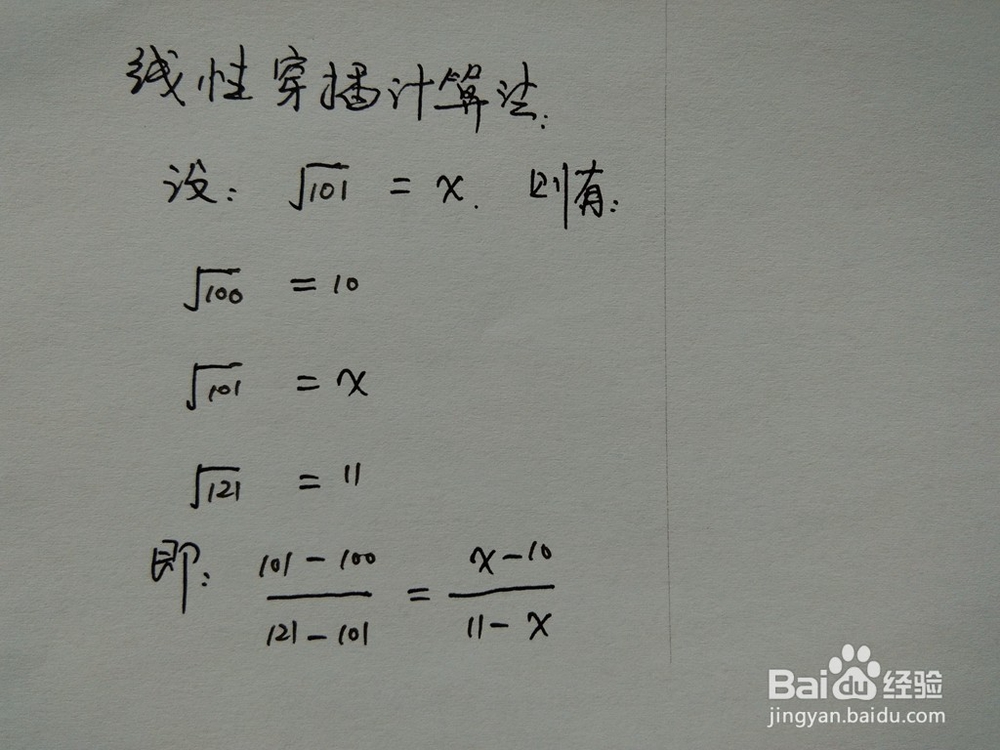 线性穿插计算法:
设: √101 = x. 则有:
√100 = 10
√101 = x
√121 = 11
即: (101-100)/(121-101) = (x-10)/(11-x)
Baidu 经验
jingyan.baidu.com